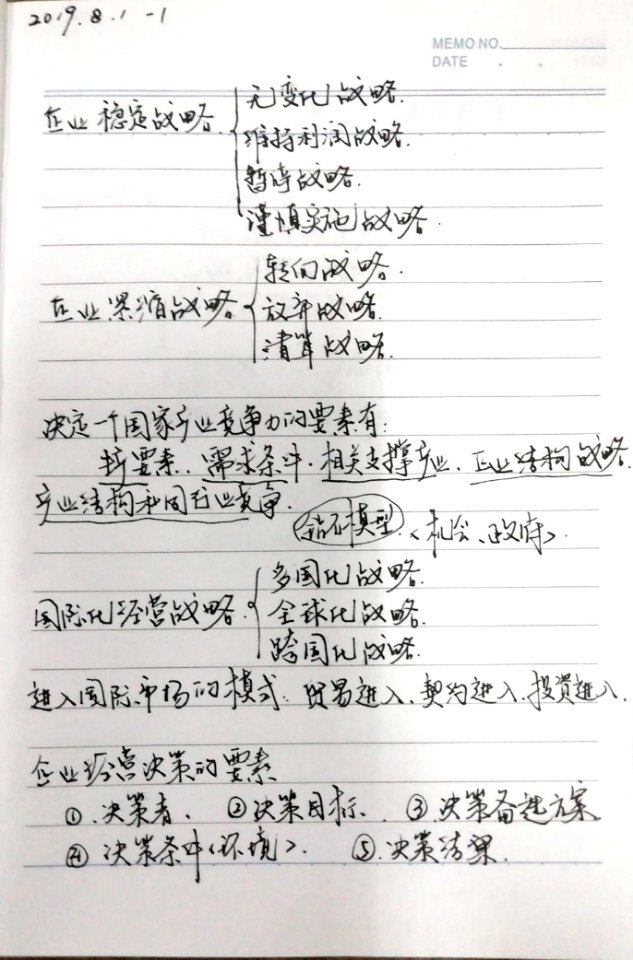 2019.8.1 -1
MEMO NO.
DATE . .
无变化战略.
企业稳定战略
维持利润战略.
暂停战略.
谨慎实施战略.
转向战略.
企业紧缩战略
放弃战略.
清算战略.
决定一个国家产业竞争力的要素有:
要素、需求条件、相关支撑产业、企业结构战略
产业结构和同行业竞争.
钻石模型 <机会、政府>.
多国化战略.
国际化经营战略
全球化战略.
跨国化战略.
进入国际市场的模式: 贸易进入、契约进入、投资进入.
企业经营决策的要素
① 决策者. ② 决策目标. ③ 决策备选方案
④ 决策条件<环境>. ⑤ 决策结果.